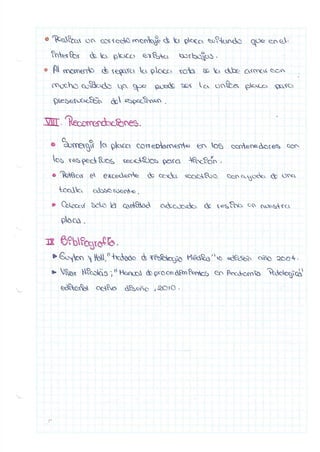 • Realizar un correcto montaje de la placa evitando que en el
interior de la placa exista burbujas.
• Al momento de reparar la placa rota se la debe armar con
mucho cuidado ya que puede ser la unica placa para
preservación del especimen.
VIII. Recomendaciones.
• Sumergir la placa correctamente en los contenedores con
los respectivos reactivos para tinción.
• Retirar el excedente de cada reactivo con ayuda de una
toalla absorvente.
• Colocar solo la cantidad adecuada de resina en nuestra
placa.
IX Bibliografía.
▸ Guyton y Hall, "tratado de fisiologia Médica" 10 edición año 2004.
▸ Vilar Nicolás; "Manual de procedimientos en Anatomía Patologica"
editorial activa diseño, 2010.